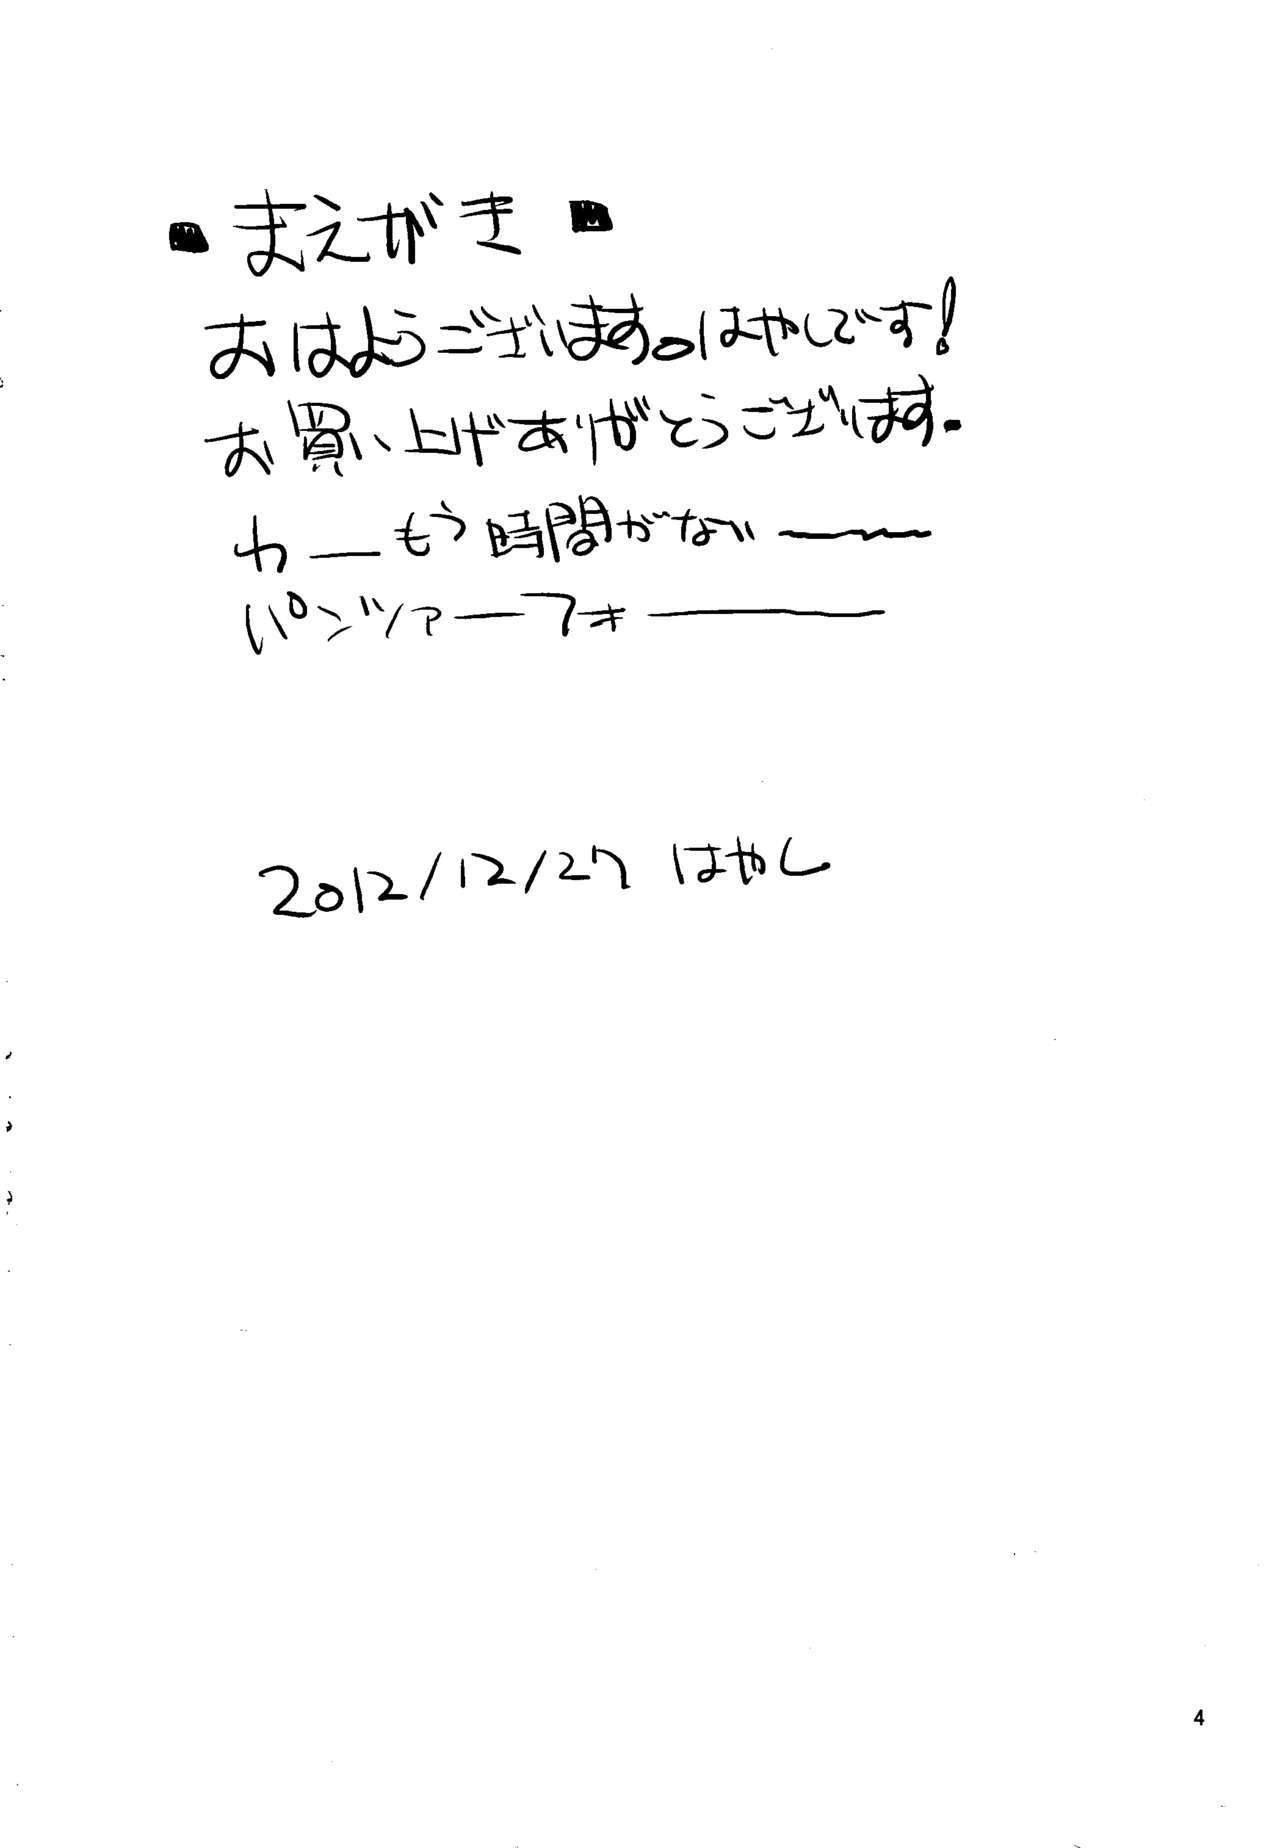 ■まえがき■
おはようございます。はやしです!
お買い上げありがとうございます.
わーもう時間がない――
パンツァーフォ――
2012/12/27 はやし
4